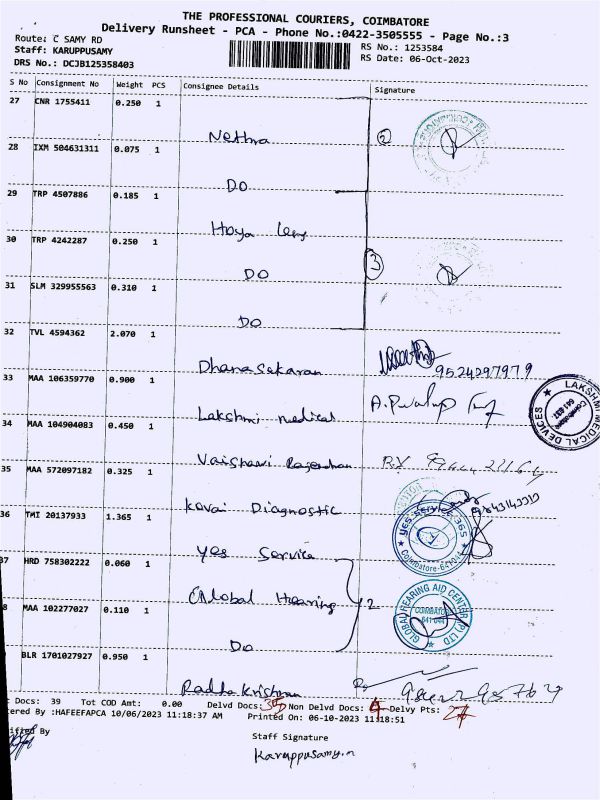 THE PROFESSIONAL COURIERS, COIMBATORE
Delivery Runsheet - PCA - Phone No.:0422-3505555 - Page No.:3
Route: C SAMY RD
Staff: KARUPPUSAMY
DRS No.: DCJB125358403
RS No.: 1253584
RS Date: 06-Oct-2023
S No Consignment No Weight PCS Consignee Details Signature
27 CNR 1755411 0.250 1
Nethra 2
28 IXM 504631311 0.075 1
DO
29 TRP 4507886 0.185 1
Hoya Lens
30 TRP 4242287 0.250 1
DO 3
31 SLM 329955563 0.310 1
DO
32 TVL 4594362 2.070 1
Dhanasekaran 9524297979
33 MAA 106359770 0.900 1
Lakshmi medical
LAKSHMI MEDICAL DEVICES
Coimbatore
34 MAA 104904083 0.450 1
Vaishnavi Rajendran
35 MAA 572097182 0.325 1
Kovai Diagnostic
36 TMI 20137933 1.365 1
Yes Service
Yes Service 365
Coimbatore-641044
37 HRD 758302222 0.060 1
Global Hearing 2
GLOBAL HEARING AID CENTER (P) LTD
COIMBATORE
641 044
8 MAA 102277027 0.110 1
DO
BLR 1701027927 0.950 1
Radha Krishnan
t Docs: 39 Tot COD Amt: 0.00 Delvd Docs: 35 Non Delvd Docs: 4 Delvy Pts: 27
tered By :HAFEEFAPCA 10/06/2023 11:18:37 AM Printed On: 06-10-2023 11:18:51
ified By
Staff Signature
Karuppusamy.n